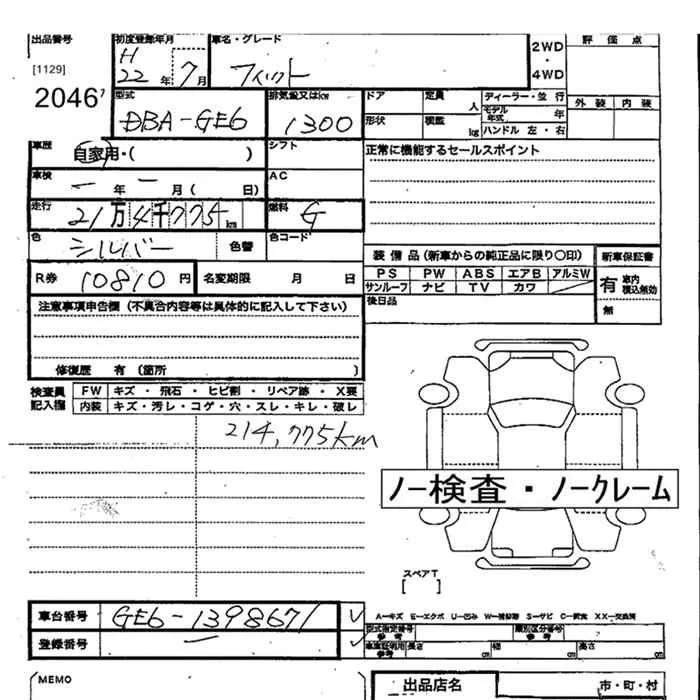 出品番号 初度登録年月 車名・グレード 2WD・4WD 評価点
[1129] H 22年 7月 フィット
20467 型式 排気量又はkw ドア 定員 人 ディーラー・並行 外装 内装
DBA-GE6 1300 形状 積載 kg モデル年式 年
ハンドル 左・右
車歴 自家用・( ) シフト 正常に機能するセールスポイント
車検 ー年 ー月( 日) AC
走行 21万4千775km 燃料 G
色 シルバー 色替 色コード 装備品(新車からの純正品に限り〇印) 新車保証書
R券 10810円 名変期限 月 日 PS PW ABS エアB アルミW 有 車内 積込無効
サンルーフ ナビ TV カワ
注意事項申告欄(不具合内容等は具体的に記入して下さい) 後日品 無
修復歴 有〔箇所 〕
検査員記入欄 FW キズ・飛石・ヒビ割・リペア跡・X要
内装 キズ・汚レ・コゲ・穴・スレ・キレ・破レ
214,775km
ノー検査・ノークレーム
スペアT
[ ]
車台番号 GE6-1398671 A-キズ E-エクボ U-凹み
登録番号 ー 型式指定番号 参考 類別区分番号 参考
車庫証明用 参考 長さ cm 幅 cm 高さ cm
MEMO 出品店名 市・町・村